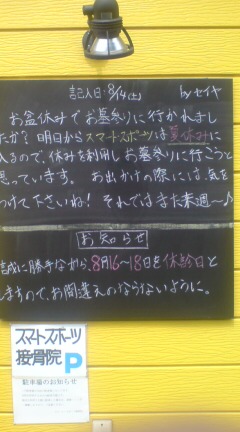 記入日:8/14(土) byセイヤ
お盆休みでお墓参りに行かれまし
たか?明日からスマートスポーツは夏休みに
入るので、休みを利用しお墓参りに行こうと
思っています。お出かけの際には気を
つけて下さいね!それではまた来週〜♪
お知らせ
誠に勝手ながら、8月16〜18日を休診日と
しますので、お間違えのないように。
スマートスポーツ
接骨院 P
駐車場のお知らせ